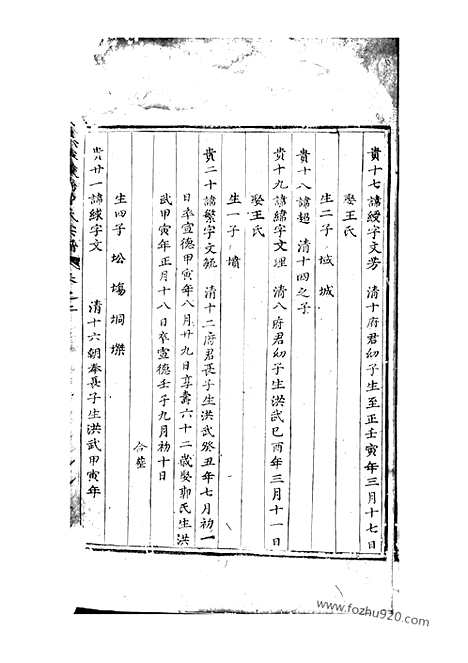 貴十七諱綬字文芳 清十府君幼子生至正壬寅年三月十七日
娶王氏
生二子 域 城
貴十八諱超 清十四之子
貴十九諱緯字文理 清八府君幼子生洪武己酉年三月十一日
娶王氏
生一子 墳
貴二十諱繁字文 清十二府君長子生洪武癸丑年七月初一
日卒宣德甲寅年八月廿九日享壽六十二歲娶郭氏生洪
武甲寅年正月十八日卒宣德壬子九月初十日
合葬
生四子 坋 塲 坰 壏
貴廿一諱綠字文 清十六朝奉長子生洪武甲寅年
www.fozhu920.com